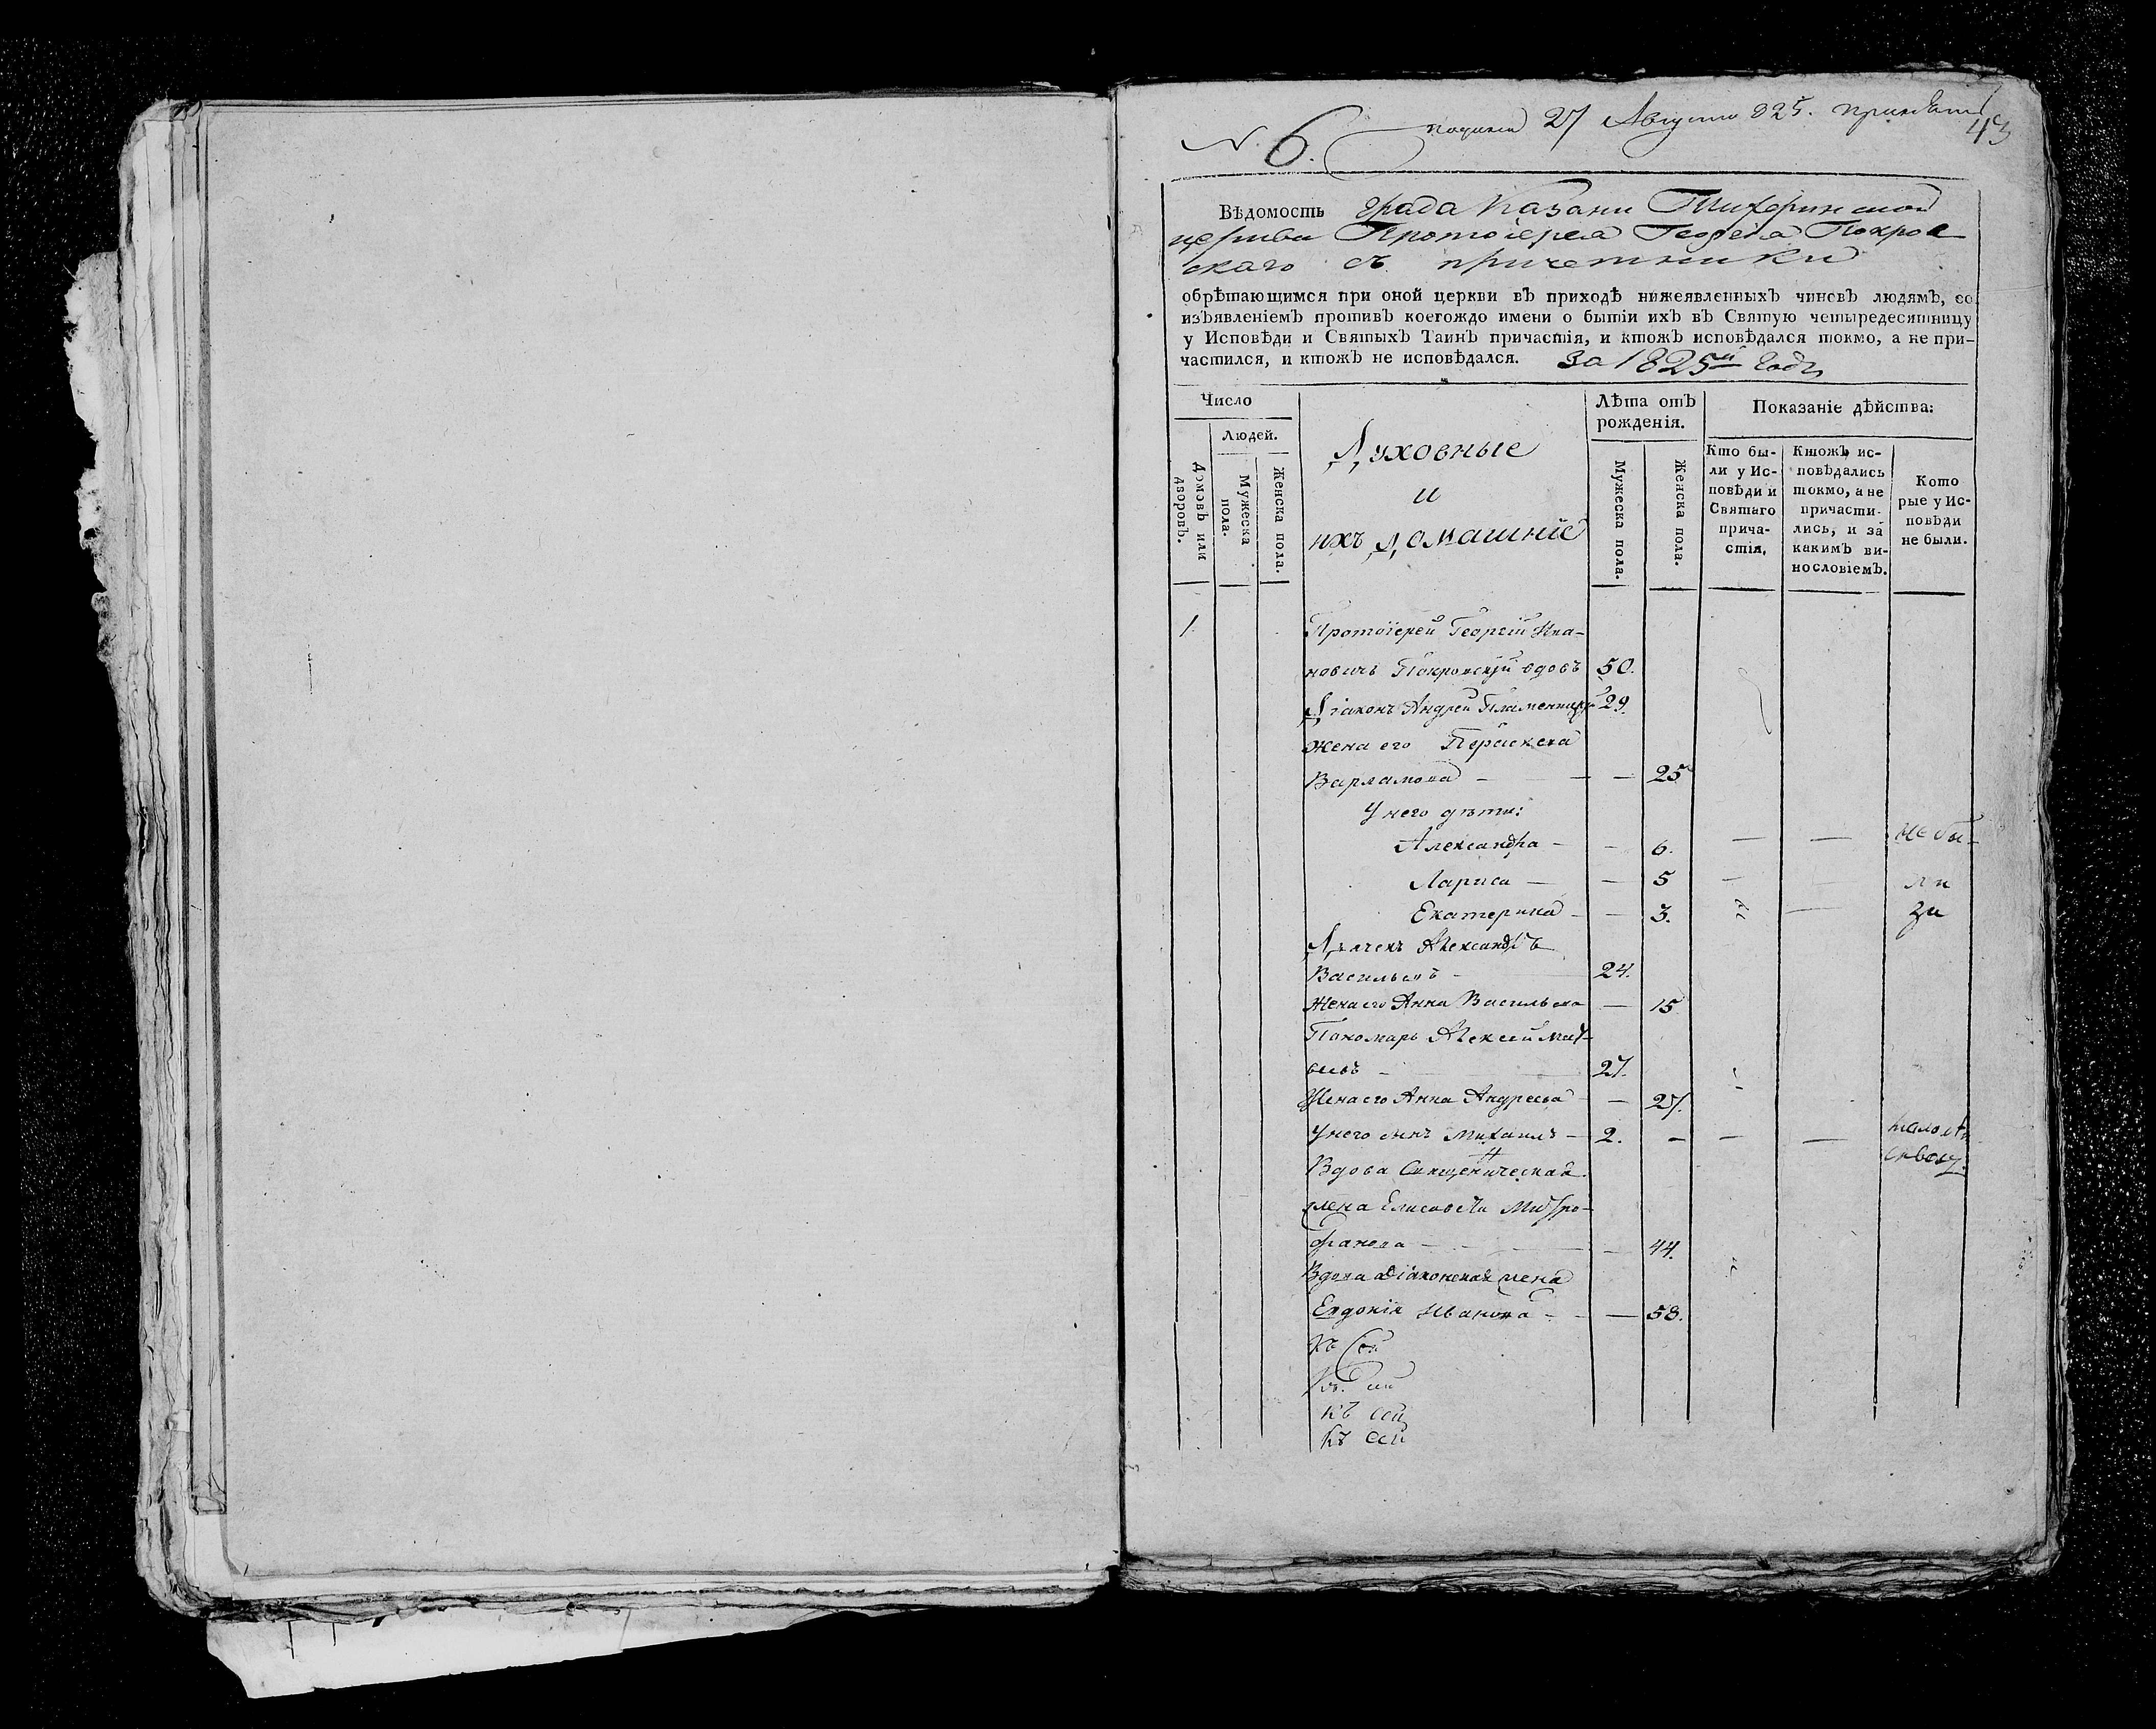 N. 6. подана 27 Августа 825. принять
43
Вѣдомость града Казани Тихвинской
церкви Протоіерея Георгіа Покров
скаго съ причетники
обрѣтающимся при оной церкви въ приходѣ нижеявленныхъ чиновъ людямъ, со
изъявленіемъ противъ коегождо имени о бытіи ихъ въ Святую четыредесятницу
у Исповѣди и Святыхъ Таинъ причастія, и ктожъ исповѣдался токмо, а не при-
частился, и ктожъ не исповѣдался. за 1825й годъ
Число
Людей.
Домовъ или
дворовъ.
Мужеска
пола.
Женска пола.
Духовные
и
ихъ домашніе
Лѣта отъ
рожденія.
Мужеска пола.
Женска пола.
Показаніе дѣйства:
Кто бы-
ли у Ис-
повѣди и
Святаго
прича-
стія.
Ктожъ ис-
повѣдались
токмо, а не
причасти-
лись, и за
какимъ ви-
нословіемъ.
Кото
рые у Ис-
повѣди
не были.
1. Протоіерей Георгій Ива-
новичъ Покровскій вдовъ 50.
Діаконъ Андрей 29.
жена его Параскева
Варламова — — — 25
У него дѣти:
Александра — — 6. — — не бы-
Лариса — — 5 — — ли
Екатерина — — 3. — за
Дьячекъ Александръ
Васильевъ — 24.
Жена его Анна Васильева — 15
Пономарь Алексей Мат-
вѣевъ — 27.
Жена его Анна Андреева — — 27.
У него сынъ Михаилъ — 2. — — — малолѣт
ствомъ
Вдова Священическая
жена Елисавета Митро-
фанова — — 44.
Вдова діаконская жена
Евдокія Иванова — — 58.
къ сей
къ сей
къ сей